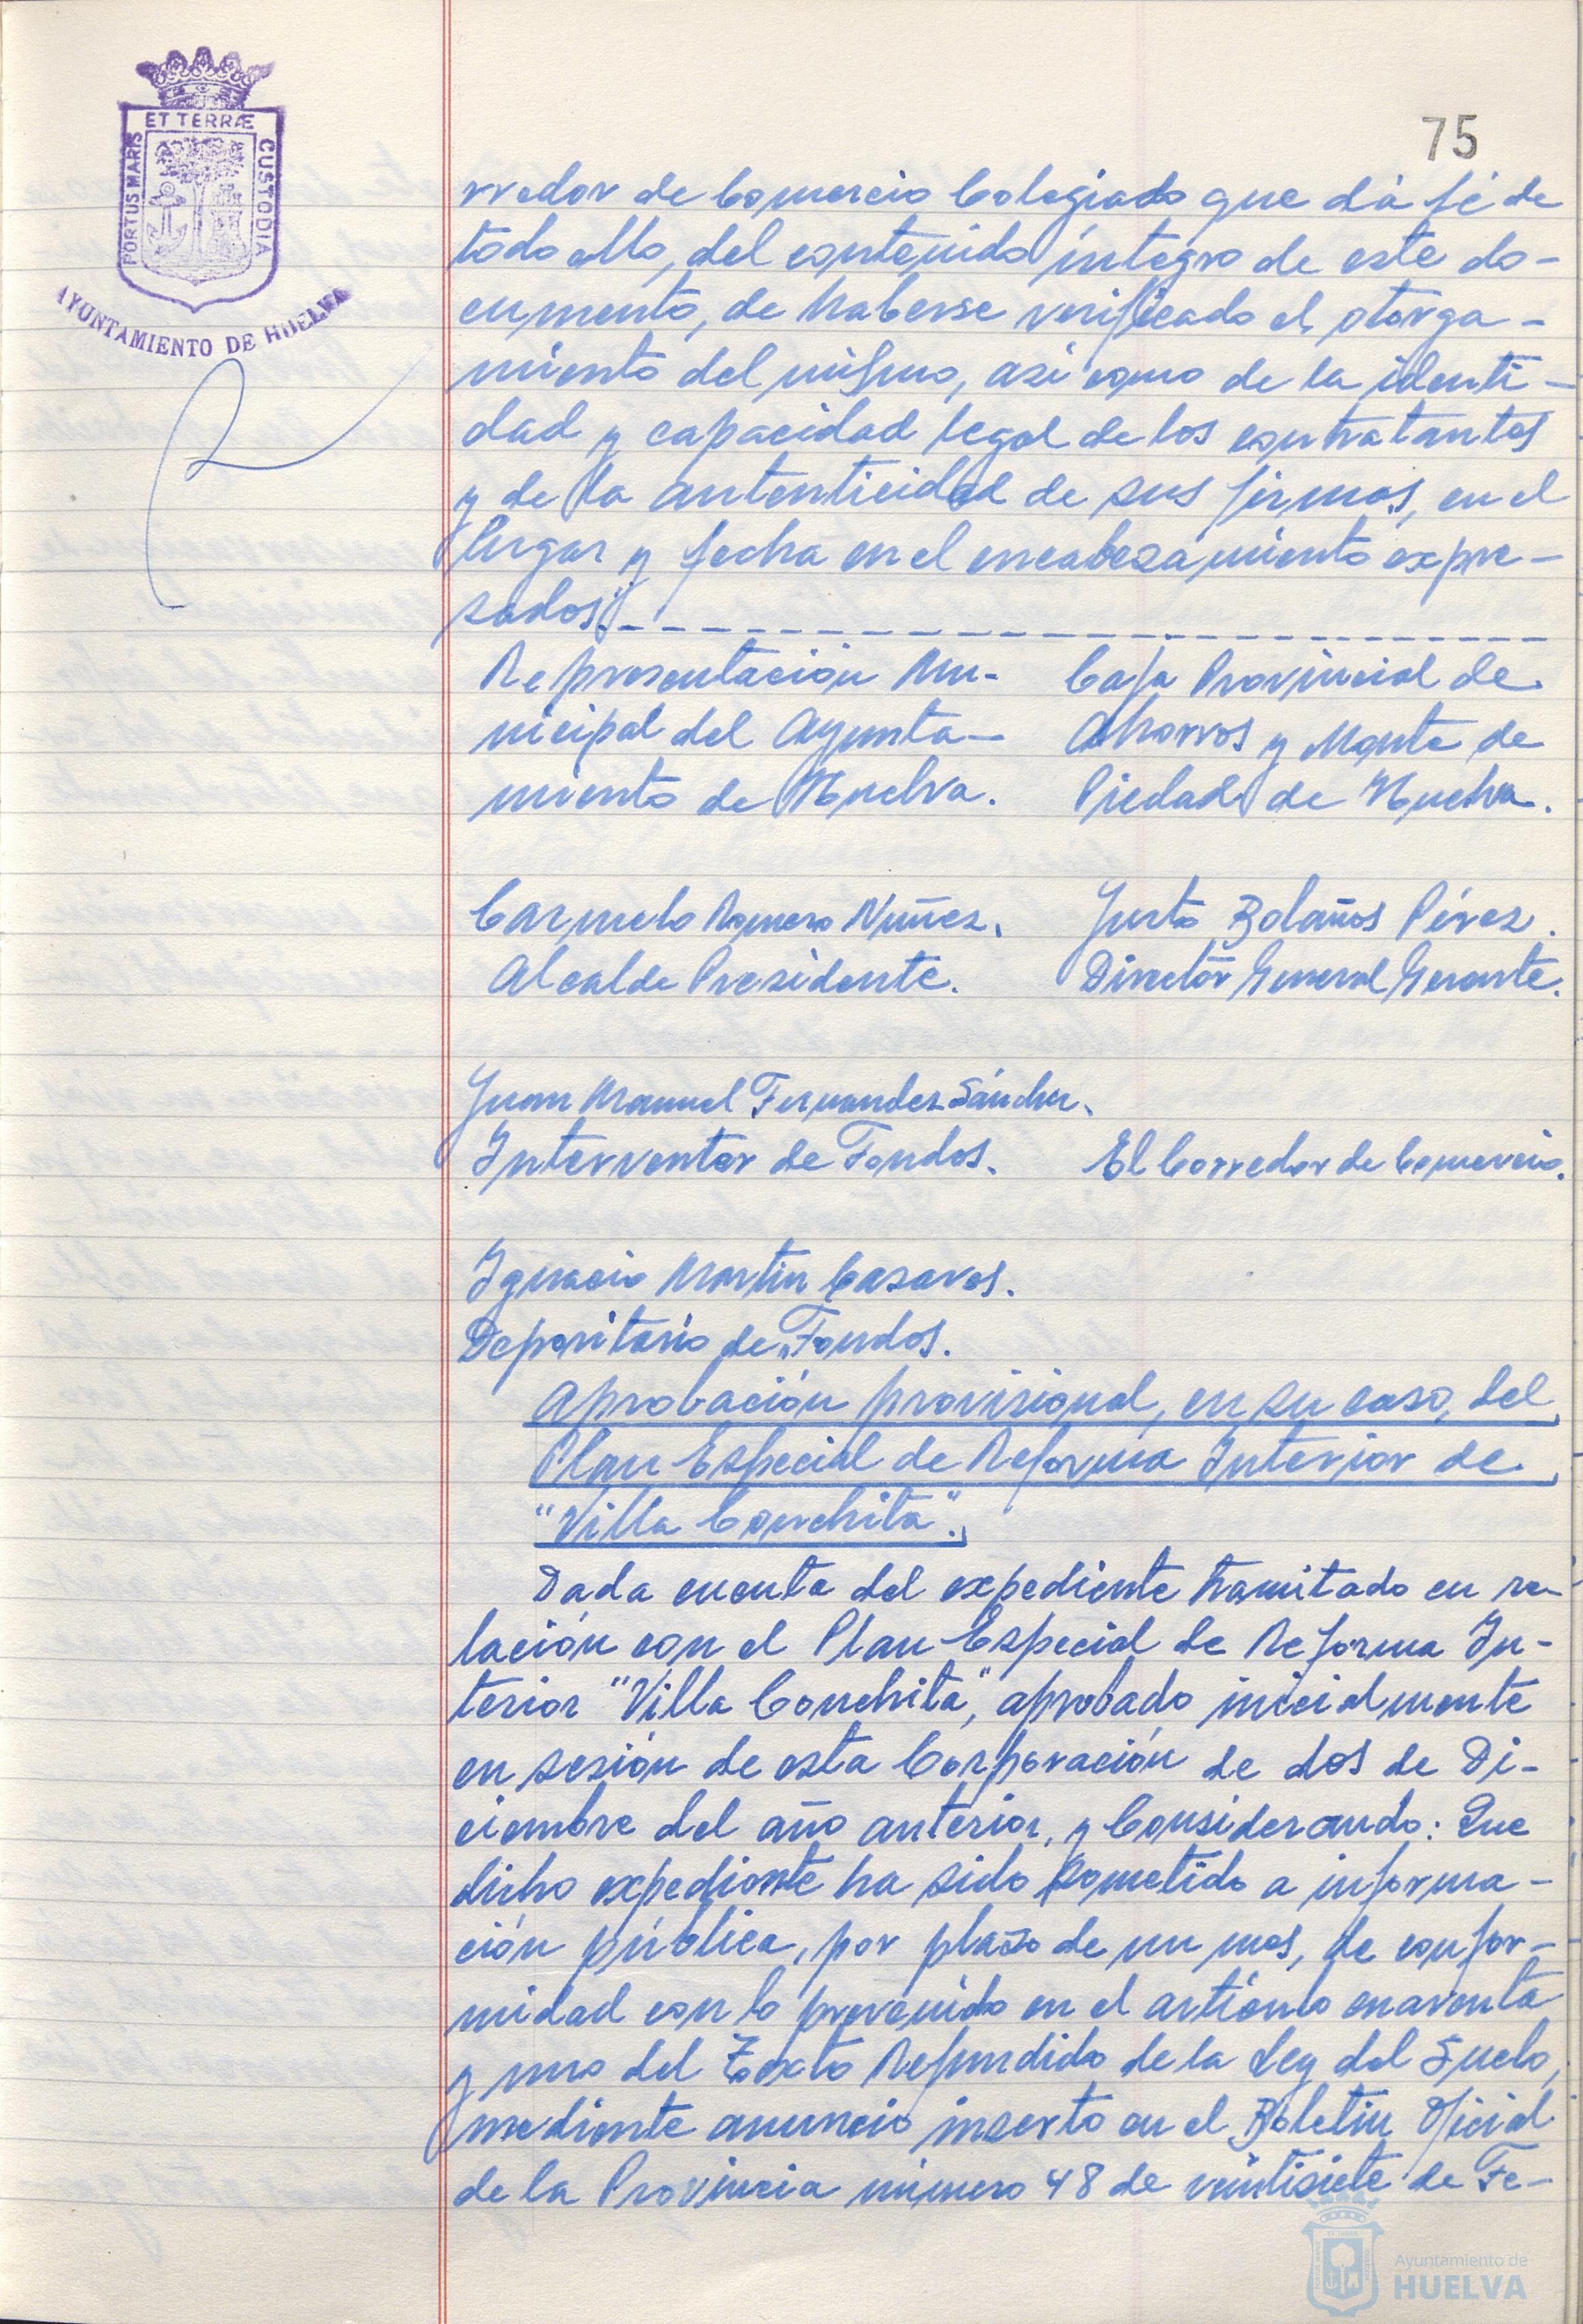 ET TERRÆ
PORTUS MARIS
CUSTODIA
AYUNTAMIENTO DE HUELVA
75
rredor de Comercio Colegiado que dá fé de
todo ello, del contenido íntegro de este do-
cumento, de haberse verificado el otorga-
miento del mismo, asi como de la identi-
dad y capacidad legal de los contratantes
y de la autenticidad de sus firmas, en el
lugar y fecha en el encabezamiento expre-
sados".
Representación Mu-
nicipal del Ayunta-
miento de Huelva.
Caja Provincial de
Ahorros y Monte de
Piedad de Huelva.
Carmelo Romero Núñez.
Alcalde Presidente.
Justo Bolaños Pérez.
Director General Gerente.
Juan Manuel Fernandez Sánchez.
Interventor de Fondos.
El Corredor de Comercio.
Ignacio Martin Casares.
Depositario de Fondos.
Aprobación provisional, en su caso, del
Plan Especial de Reforma Interior de
"Villa Conchita".
Dada cuenta del expediente tramitado en re-
lación con el Plan Especial de Reforma In-
terior "Villa Conchita", aprobado inicialmente
en sesión de esta Corporación de dos de Di-
ciembre del año anterior, y Considerando: Que
dicho expediente ha sido sometido a informa-
ción pública, por plazo de un mes, de confor-
midad con lo prevenido en el artículo cuarenta
y uno del Texto Refundido de la Ley del Suelo,
mediante anuncio inserto en el Boletin Oficial
de la Provincia número 48 de veintisiete de Fe-
Ayuntamiento de
HUELVA